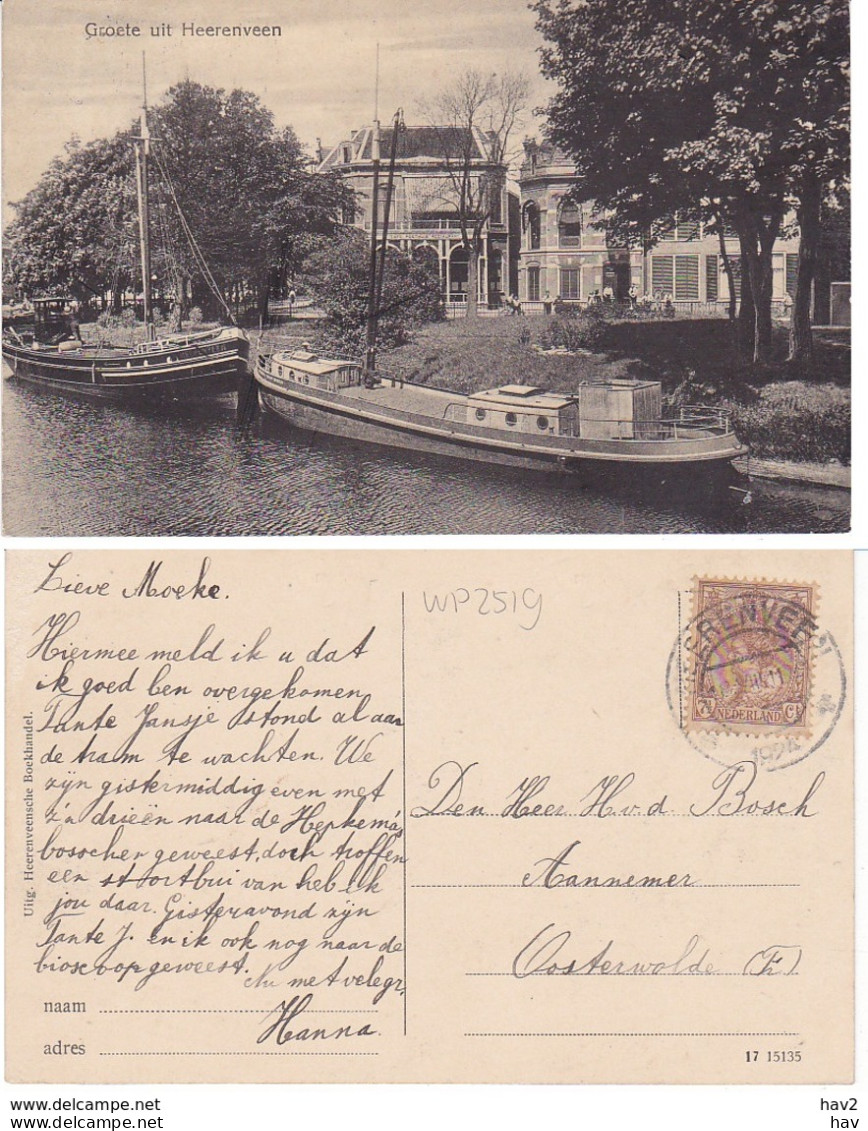 Groete uit Heerenveen
Lieve Moeke.
Hiermee meld ik u dat
ik goed ben overgekomen
Tante Jansje stond al aan
de tram te wachten. We
zijn gistermiddig even met
z'n drieën naar de Herkema's
bosschen geweest, doch troffen
een stortbui van heb ik
jou daar. Gisteravond zijn
Tante J. en ik ook nog naar de
bioscoop geweest. Nu met velegr.
Hanna.
naam
adres
Uitg. Heerenveensche Boekhandel.
WP2519
HEERENVEEN
1924
7½ NEDERLAND Ct
Den Heer H. v. d. Bosch
Aannemer
Oosterwolde (Fr.)
17 15135
hav2
www.delcampe.net
hav